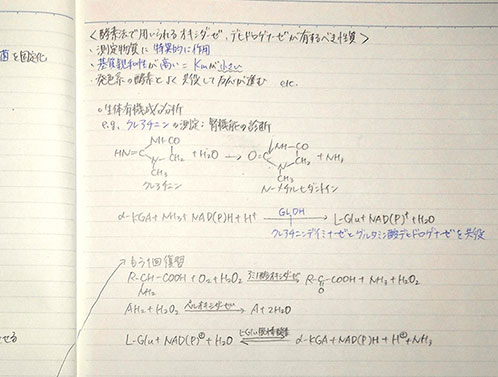 菌を固定化
<酵素法で用いられるオキシダーゼ、デヒドロゲナーゼが有するべき性質>
・測定物質に特異的に作用
・基質親和性が高い = Kmが小さい
・発色系の酵素とよく共役して反応が進む etc.
○生体有機成分の分析
e.g. クレアチニンの測定:腎機能の診断
NH-CO
HN=C + H2O → O=C + NH3
N-CH2
CH3
クレアチニン N-メチルヒダントイン
α-KGA + NH3 + NAD(P)H + H+ GlDH → L-Glu + NAD(P)+ + H2O
クレアチニンデイミナーゼとグルタミン酸デヒドロゲナーゼを共役
もう1回復習
R-CH-COOH + O2 + H2O2 アミノ酸オキシダーゼ → R-C-COOH + NH3 + H2O2
NH2 O
AH2 + H2O2 ペルオキシダーゼ → A + 2H2O
L-Glu + NAD(P)+ + H2O α-KGA + NAD(P)H + H+ + NH3
せる